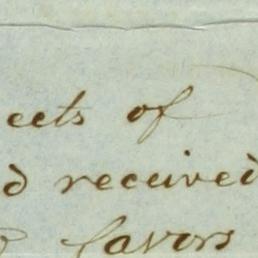 eets of
d received
favors